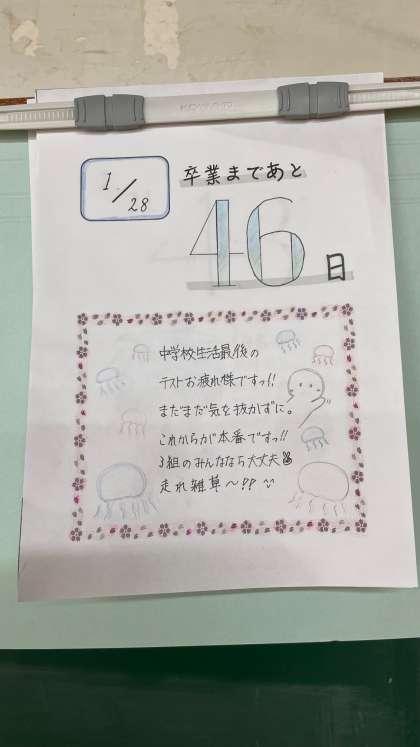 KOKUYO
1/28
卒業まであと
46
日
中学校生活最後の
テストお疲れ様ですっ!!
まだまだ気を抜かずに。
これからが本番ですっ!!
3組のみんななら大丈夫
走れ雑草〜!?